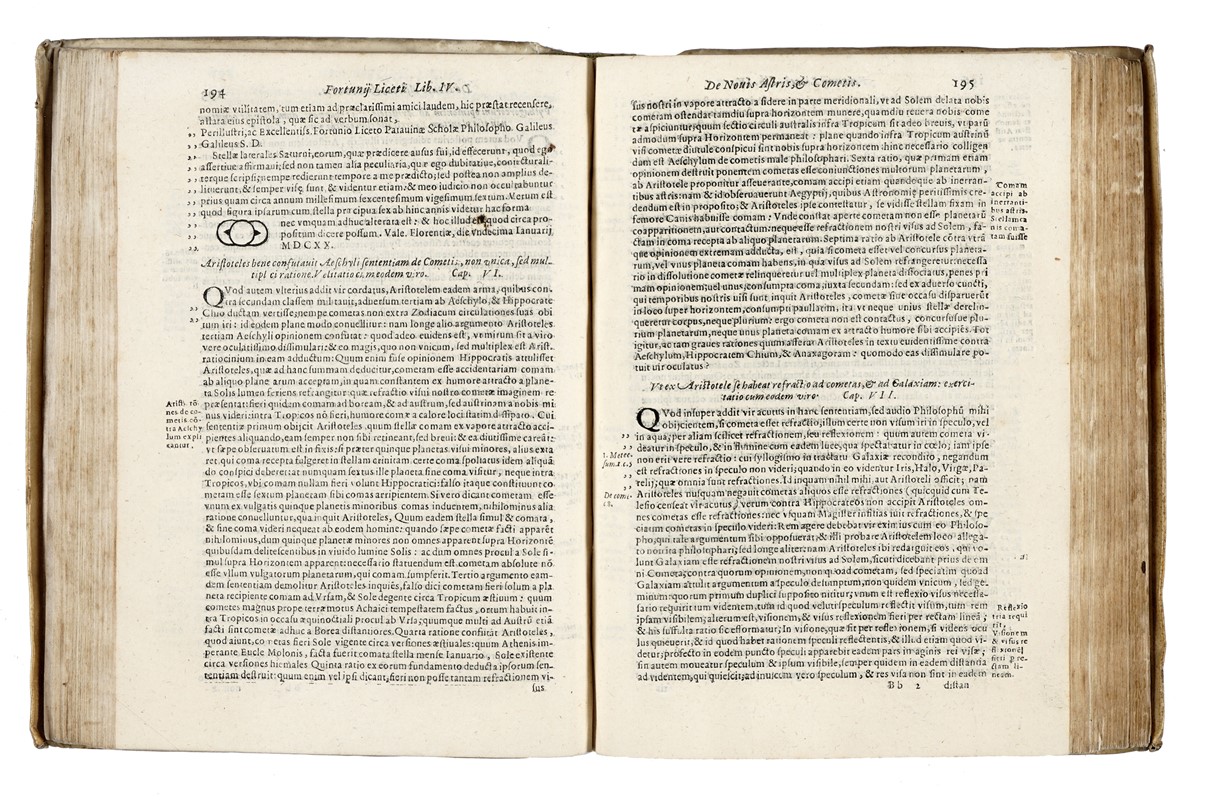 194 Fortunij Liceti Lib. IV.
nomiæ vtilitatem, tum etiam ad præclarissimi amici laudem, hic præstat recensere,
allata eius epistola, quæ sic ad verbum sonat.
,, Perillustri, ac Excellentiss. Fortunio Liceto Patauinæ Scholæ Philosopho Galileus
,, Galileus S. D.
,, Stellæ laterales Saturni, eorum, quæ prædicere ausus fui, id effecerunt, quod ego
,, assertiue affirmaui; sed non tamen alia peculiaria, quæ ego dubitatiue, coniecturali-
,, terque scripsi; nempe redierunt tempore a me prædicto; sed postea non amplius de-
,, liquerunt; & semper visę sunt, & videntur etiam; & meo iudicio non occultabuntur
,, prius quam circa annum millesimum sexcentesimum vigesimum sextum. Verum est
,, quod figura ipsarum cum stella præcipua sex ab hinc annis videtur hac forma
,, nec vnquam adhuc alterata est: & hoc illud est, quod circa pro-
,, positum dicere possum. Vale. Florentiæ, die vndecima Ianuarij
,, MDCXX.
Aristoteles bene confutauit Aeschyli sententiam de Cometis, non vnica, sed mul-
tiplici ratione. Velitatio cum eodem viro. Cap. VI.
QVod autem vlterius addit vir cordatus, Aristotelem eadem arma, quibus con-
tra secundam classem militauit, aduersum tertiam ab Aeschylo, & Hippocrate
,, Chio ductam vertisse; nempe cometas non extra Zodiacum circulationes suas obi
,, turos: id eodem plane modo conuellitur: nam longe alio argumento Aristoteles
tertiam Aeschyli opinionem confutat: quod adeo euidens est, vt mirum sit a viro
vere oculatissimo dissimulari: & eo magis, quo non vnicum, sed multiplex est Arist.
ratiocinium in eam adductum: Quum enim fuse opinionem Hippocratis attulisset
Aristoteles, quæ ad hanc summam deducitur, cometam esse accidentariam comam
ab aliquo planetarum acceptam, in quam constantem ex humore attracto a plane-
ta Solis lumen feriens refrangitur: quæ refractio visui nostro cometæ imaginem re-
præsentat: fieri quidem comam ad boream, & ad austrum, sed austrinam a nobis mi
nus videri: intra Tropicos nō fieri, humore comæ a calore loci statim dissipato. Cui
sententiæ primum obijcit Aristoteles, quum stellæ comam ex vapore attracto acci-
pientes aliquando, eam semper non sibi retineant, sed breui: & ea diutissime careāt:
vt sæpe obseruatum est in fixis: si præter quinque planetas visui minores, alius exta
ret, qui coma recepta fulgeret in stellam crinitam, certe coma spoliatus idem aliquā
do conspici deberet: at nunquam sextus ille planeta sine coma visitur, neque intra
Tropicos, vbi comam nullam fieri volunt Hippocratici: falso itaque constituunt co
metam esse sextum planetam sibi comas arripientem. Si vero dicant cometam esse
vnum ex vulgatis quinque planetis minoribus comas induentem, nihilominus alia
ratione conuelluntur, qua inquit Aristoteles, Quum eadem stella simul & comata,
& sine coma videri nequeat ab eodem homine: quando sæpe cometæ facti apparēt
nihilominus, dum quinque planetæ minores non omnes apparent supra Horizontē
quibusdam delitescentibus in viuido lumine Solis: ac dum omnes procul a Sole si-
mul supra Horizontem apparent: necessario statuendum est cometam absolute nō
esse vllum vulgatorum planetarum, qui comam sumpserit. Tertio argumento eam-
dem sententiam demolitur Aristoteles inquiēs, falso dici cometam fieri solum a pla
neta recipiente comam ad Vrsam, & Sole degente circa Tropicum æstiuum: quum
cometes magnus prope terræmotus Achaici tempestatem factus, ortum habuit in-
tra Tropicos in occasu æquinoctiali procul ab Vrsa; quumque multi ad Austrū etiā
facti sint cometæ adhuc a Borea distantiores. Quarta ratione confutat Aristoteles,
quod aiunt, cometas fieri Sole vigente circa versiones æstiuales: quum Athenis im-
perante Eucle Molonis, facta fuerit comata stella mense Ianuario, Sole existente
circa versiones hiemales. Quinta ratio ex eorum fundamento deducta ipsorum sen-
tentiam destruit: quum enim vel ipsi dicant, fieri non posse tantam refractionem vi-
sus
Aristi. rō
nes de co-
metis cō-
tra Aeschy
lum expli
cantur.
De Nouis Astris, & Cometis. 195
sus nostri in vapore attracto a sidere in parte meridionali, vt ad Solem delata nobis
cometam ostendat tamdiu supra horizontem munere, quamdiu reuera nobis come
tæ aspiciuntur; quum sectio circuli australis infra Tropicum sit adeo breuis, vt parū
admodum supra Horizontem permaneat: plane quando infra Tropicum austrinū
visi cometæ diutule conspicui sunt nobis supra horizontem: hinc necessario colligen
dum est Aeschylum de cometis male philosophari. Sexta ratio, quæ primam etiam
opinionem destruit ponentem cometas esse coniunctiones multorum planetarum,
ab Aristotele proponitur asseuerante, comam accipi etiam quandoque ab inerran-
tibus astris: nam & id obseruauerunt Aegyptij, quibus Astronomiæ peritissimis cre-
dendum est in proposito; & Aristoteles ipse contestatur, se vidisse stellam fixam in
femore Canis habuisse comam: Vnde constat aperte cometam non esse planetarū
coapparitionem, aut contactum: neque esse refractionem nostri visus ad Solem, fa-
ctam in coma recepta ab aliquo planetarum. Septima ratio ab Aristotele cōtra vtrā
que opinionem extremam adducta, est, quia si cometa esset vel concursus planeta-
rum, vel vnus planeta comam habens, in qua visus ad Solem refrangeretur: necessa
rio in dissolutione cometæ relinqueretur vel multiplex planeta dissociatus, penes pri
mam opinionem; vel unus, consumpta coma, iuxta secundam: sed ex aduerso cuncti,
qui temporibus nostris uisi sunt, inquit Aristoteles, cometæ sine occasu disparuerūt
in loco super horizontem, consumpti paullatim, ita vt neque vnius stellæ derelin-
queretur corpus, neque plurium: ergo cometa non est contactus, concursusue plu-
rium planetarum, neque unus planeta comam ex attracto humore sibi accipiēs. Tot
igitur, ac tam graues rationes quum afferat Aristoteles in textu euidentissime contra
Aeschylum, Hippocratem Chium, & Anaxagoram: quomodo eas dissimulare po-
tuit uir oculatus?
Vt ex Aristotele se habeat refractio ad cometas, & ad Galaxiam: exerci-
tatio cum eodem viro. Cap. VII.
QVod insuper addit vir acutus in hanc sententiam, sed audio Philosophū mihi
obijcientem, si cometa esset refractio; illum certe non visum iri in speculo, vel
,, in aqua; per aliam scilicet refractionem, seu reflexionem: quum autem cometa vi-
,, deatur in speculo, & in flumine cum eadem luce, qua spectabatur in cœlo; iam ipse
non erit vere refractio: cui syllogismo in tractatu Galaxiæ recondito, negandum
est refractiones in speculo non videri; quando in eo videntur Iris, Halo, Virgæ, Pa-
,, relij; quæ omnia sunt refractiones. Id inquam nihil mihi, aut Aristoteli officit; nam
,, Aristoteles nusquam negauit cometas aliquos esse refractiones (quicquid cum Te-
lesio censeat vir acutus) verum contra Hippocrateos non accipit Aristoteles om-
nes cometas esse refractiones: nec vsquam Magister inficias iuit refractiones, & spe
ciatim cometas in speculo videri: Rem agere debebat vir eximius cum eo Philoso-
pho, qui tale argumentum sibi opposuerat; & illi probare Aristotelem loco allega-
to non ita philosophari; sed longe aliter: nam Aristoteles ibi redarguit eos, qui vo-
lunt Galaxiam esse refractionem nostri visus ad Solem, sicuti dicebant prius de om
ni Cometa; contra quorum opinionem, non quoad cometam, sed speciatim quoad
Galaxiam attulit argumentum a speculo desumptum, non quidem vnicum, sed ge-
minum: quorum primum duplici supposito nititur; vnum est reflexio visus necesse-
sario requirit tum videntem, tum id quod veluti speculum reflectit visum, tum rem
ipsam visibilem; alterum est, visionem, & visus reflexionem fieri per rectam lineā;
& his suffulta ratio sic efformatur; In visione, quæ fit per reflexionem, si videns ocu
lus quieuerit, & id quod habet rationem speculi reflectentis, & illud etiam quod vi-
detur; profecto in eodem puncto speculi apparebit eadem pars imaginis rei visæ;
sin autem moueatur speculum & ipsum visibile, semper quidem in eadem distantia
ad videntem, qui quiescit; ad inuicem vero speculum, & res visa non sint in eadem
Bb 2 distan
Comam
accipi ab
inerranti-
bus astris.
Stellam ca
nis coma-
tam fuisse
1. Meteo.
sum. 2. c. 5.
De come.
c. 8.
Reflexio
tria requi
rit.
Visionem
& visus re
flexionē
fieri p re-
ctam li-
neam.